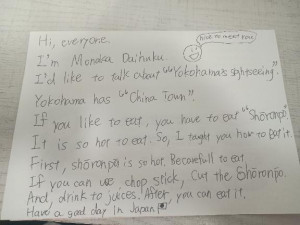 Hi, everyone.
Nice to meet you
I'm Monaisa Daihuku
I'd like to talk about "Yokohama's sightseeing".
Yokohama has "China Town".
If you like to eat, you have to eat "Shōronpō".
It is so hot to eat. So, I taght you how to eat it.
First, shōronpō is so hot. Becarefull to eat.
If you can use chop stick, Cut the Shōronpō.
And, drink to juices. After, you can eat it.
Have a good day in Japan!